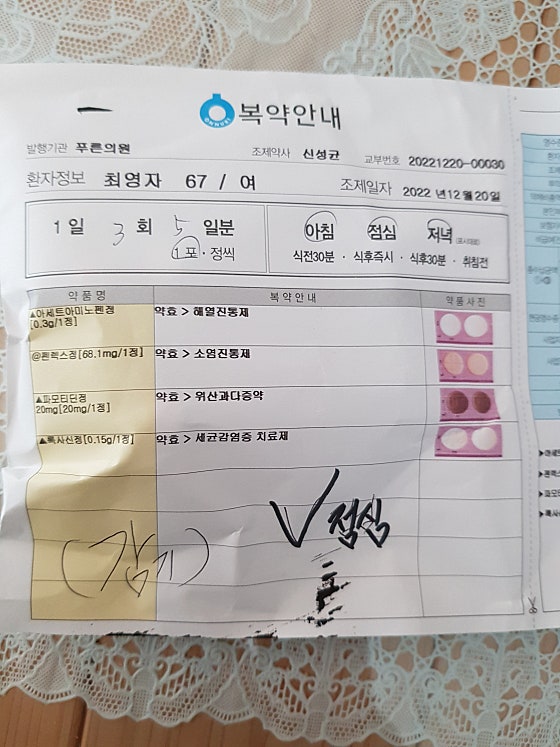 복약안내
발행기관 푸른의원 조제약사 신성균 교부번호 20221220-00030
환자정보 최영자 67 / 여 조제일자 2022 년12월20일
1 일 3 회 5 일분
1 포·정씩
아침 점심 저녁
식전30분 · 식후즉시 · 식후30분 · 취침전
약 품 명 복 약 안 내 약 품 사 진
▲아세트아미노펜정 [0.3g/1정] 약효 > 해열진통제
@펜렉스정[68.1mg/1정] 약효 > 소염진통제
▲파모티딘정 20mg[20mg/1정] 약효 > 위산과다증약
▲록사신정[0.15g/1정] 약효 > 세균감염증 치료제
V 점심
(감기)